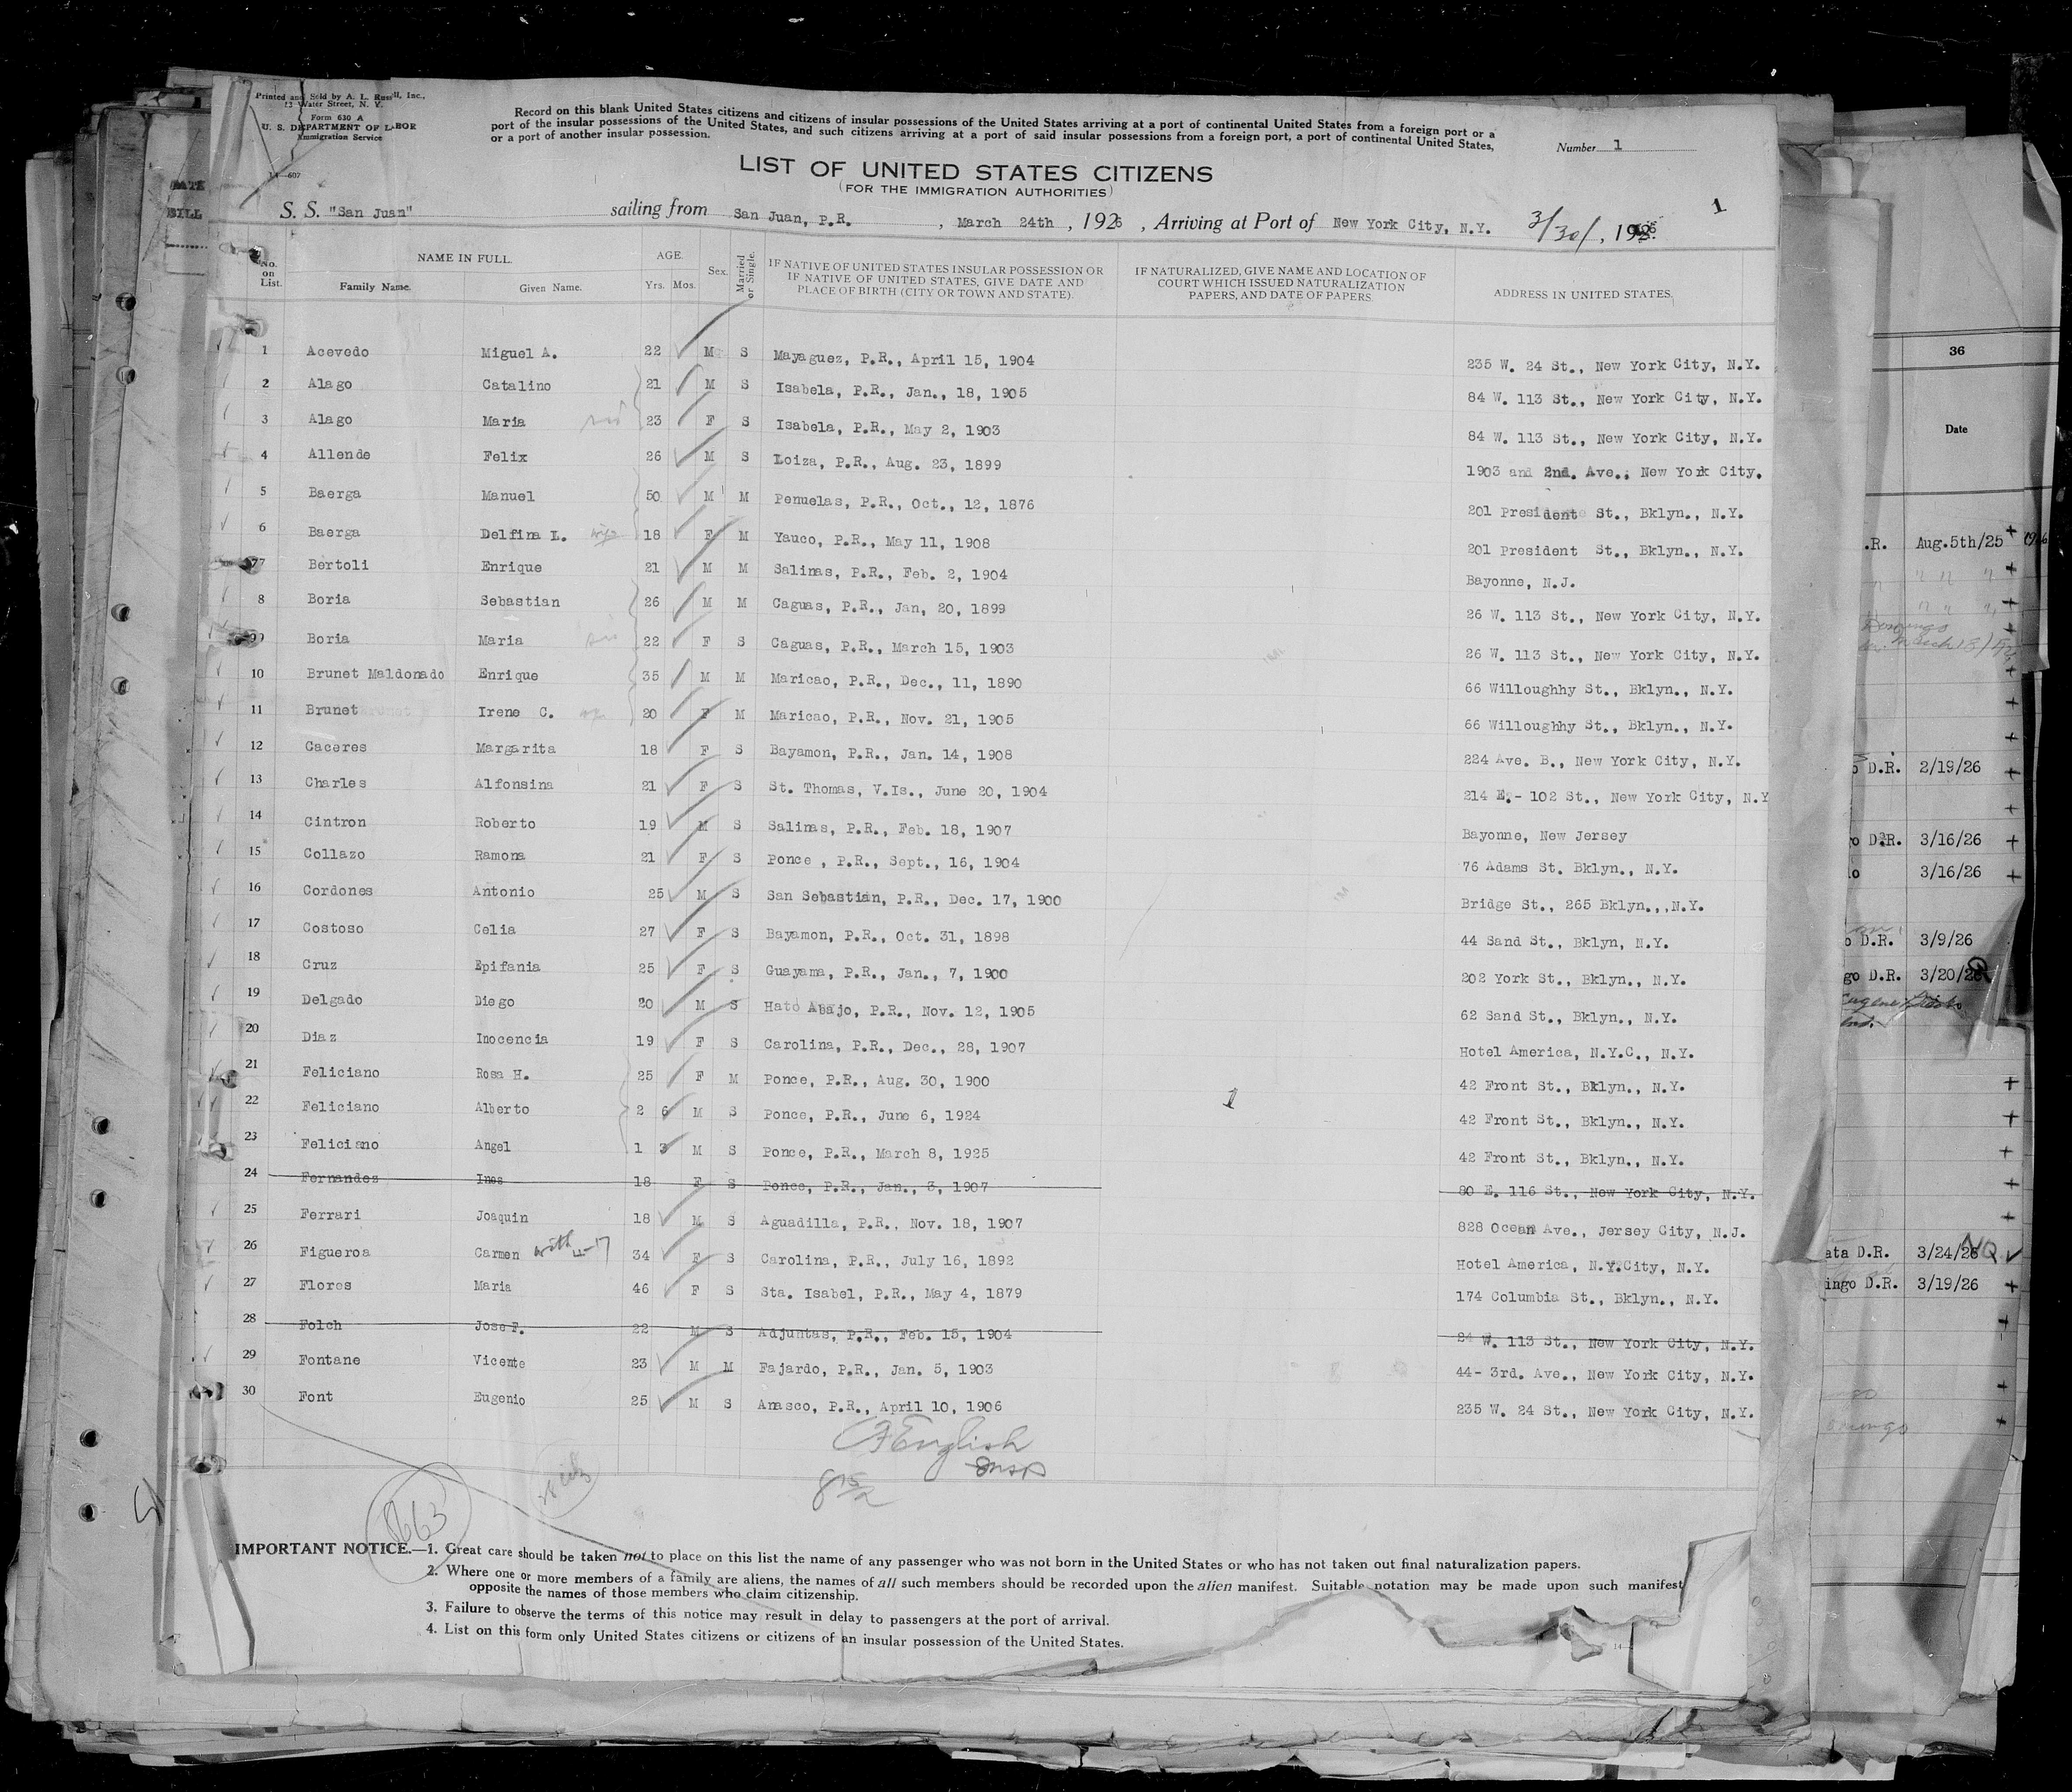 Printed and Sold by A. L. Russell, Inc.,
12 Water Street, N. Y.
Form 630 A
U. S. DEPARTMENT OF LABOR
Immigration Service
14—607
Record on this blank United States citizens and citizens of insular possessions of the United States arriving at a port of continental United States from a foreign port or a
port of the insular possessions of the United States, and such citizens arriving at a port of said insular possessions from a foreign port, a port of continental United States,
or a port of another insular possession.
Number 1
LIST OF UNITED STATES CITIZENS
(FOR THE IMMIGRATION AUTHORITIES)
1
S. S. "San Juan" sailing from San Juan, P.R. , March 24th , 1926 , Arriving at Port of New York City, N.Y. 3/30/, 1926
No. on List. NAME IN FULL. Family Name. Given Name. AGE. Yrs. Mos. Sex. Married or Single. IF NATIVE OF UNITED STATES INSULAR POSSESSION OR IF NATIVE OF UNITED STATES, GIVE DATE AND PLACE OF BIRTH (CITY OR TOWN AND STATE). IF NATURALIZED, GIVE NAME AND LOCATION OF COURT WHICH ISSUED NATURALIZATION PAPERS, AND DATE OF PAPERS. ADDRESS IN UNITED STATES.
1 Acevedo Miguel A. 22 M S Mayaguez, P.R., April 15, 1904 235 W. 24 St., New York City, N.Y.
2 Alago Catalino 21 M S Isabela, P.R., Jan., 18, 1905 84 W. 113 St., New York City, N.Y.
3 Alago Maria sis 23 F S Isabela, P.R., May 2, 1903 84 W. 113 St., New York City, N.Y.
4 Allende Felix 26 M S Loiza, P.R., Aug. 23, 1899 1903 and 2nd. Ave., New York City.
5 Baerga Manuel 50 M M Penuelas, P.R., Oct., 12, 1876 201 President St., Bklyn., N.Y.
6 Baerga Delfina L. wife 18 F M Yauco, P.R., May 11, 1908 201 President St., Bklyn., N.Y.
7 Bertoli Enrique 21 M M Salinas, P.R., Feb. 2, 1904 Bayonne, N.J.
8 Boria Sebastian 26 M M Caguas, P.R., Jan, 20, 1899 26 W. 113 St., New York City, N.Y.
9 Boria Maria sis 22 F S Caguas, P.R., March 15, 1903 26 W. 113 St., New York City, N.Y.
10 Brunet Maldonado Enrique 35 M M Maricao, P.R., Dec., 11, 1890 66 Willoughhy St., Bklyn., N.Y.
11 Brunet Irene C. 20 F M Maricao, P.R., Nov. 21, 1905 66 Willoughhy St., Bklyn., N.Y.
12 Caceres Margarita 18 F S Bayamon, P.R., Jan. 14, 1908 224 Ave. B., New York City, N.Y.
13 Charles Alfonsina 21 F S St. Thomas, V.Is., June 20, 1904 214 E.- 102 St., New York City, N.Y
14 Cintron Roberto 19 M S Salinas, P.R., Feb. 18, 1907 Bayonne, New Jersey
15 Collazo Ramona 21 F S Ponce , P.R., Sept., 16, 1904 76 Adams St. Bklyn., N.Y.
16 Cordones Antonio 25 M S San Sebastian, P.R., Dec. 17, 1900 Bridge St., 265 Bklyn.,.N.Y.
17 Costoso Celia 27 F S Bayamon, P.R., Oct. 31, 1898 44 Sand St., Bklyn, N.Y.
18 Cruz Epifania 25 F S Guayama, P.R., Jan., 7, 1900 202 York St., Bklyn., N.Y.
19 Delgado Diego 20 M S Hato Abajo, P.R., Nov. 12, 1905 62 Sand St., Bklyn., N.Y.
20 Diaz Inocencia 19 F S Carolina, P.R., Dec., 28, 1907 Hotel America, N.Y.C., N.Y.
21 Feliciano Rosa H. 25 F M Ponce, P.R., Aug. 30, 1900 42 Front St., Bklyn., N.Y.
22 Feliciano Alberto 2 6 M S Ponce, P.R., June 6, 1924 1 42 Front St., Bklyn., N.Y.
23 Feliciano Angel 1 3 M S Ponce, P.R., March 8, 1925 42 Front St., Bklyn., N.Y.
24 Fernandes Ines 18 F S Ponce, P.R., Jan., 3, 1907 80 E. 116 St., New York City, N.Y.
25 Ferrari Joaquin 18 M S Aguadilla, P.R., Nov. 18, 1907 828 Ocean Ave., Jersey City, N.J.
26 Figueroa Carmen with 4-17 34 F S Carolina, P.R., July 16, 1892 Hotel America, N.Y.City, N.Y.
27 Flores Maria 46 F S Sta. Isabel, P.R., May 4, 1879 174 Columbia St., Bklyn., N.Y.
28 Folch Jose F. 22 M S Adjuntas, P.R., Feb. 15, 1904 24 W. 113 St., New York City, N.Y.
29 Fontane Vicente 23 M M Fajardo, P.R., Jan. 5, 1903 44- 3rd. Ave., New York City, N.Y.
30 Font Eugenio 25 M S Anasco, P.R., April 10, 1906 235 W. 24 St., New York City, N.Y.
English
Insp
IMPORTANT NOTICE.—1. Great care should be taken not to place on this list the name of any passenger who was not born in the United States or who has not taken out final naturalization papers.
2. Where one or more members of a family are aliens, the names of all such members should be recorded upon the alien manifest. Suitable notation may be made upon such manifest
opposite the names of those members who claim citizenship.
3. Failure to observe the terms of this notice may result in delay to passengers at the port of arrival.
4. List on this form only United States citizens or citizens of an insular possession of the United States.
36
Date
.R. Aug.5th/25
D.R. 2/19/26
o D.R. 3/16/26
3/16/26
o D.R. 3/9/26
go D.R. 3/20/26
ata D.R. 3/24/26 NQ
ingo D.R. 3/19/26